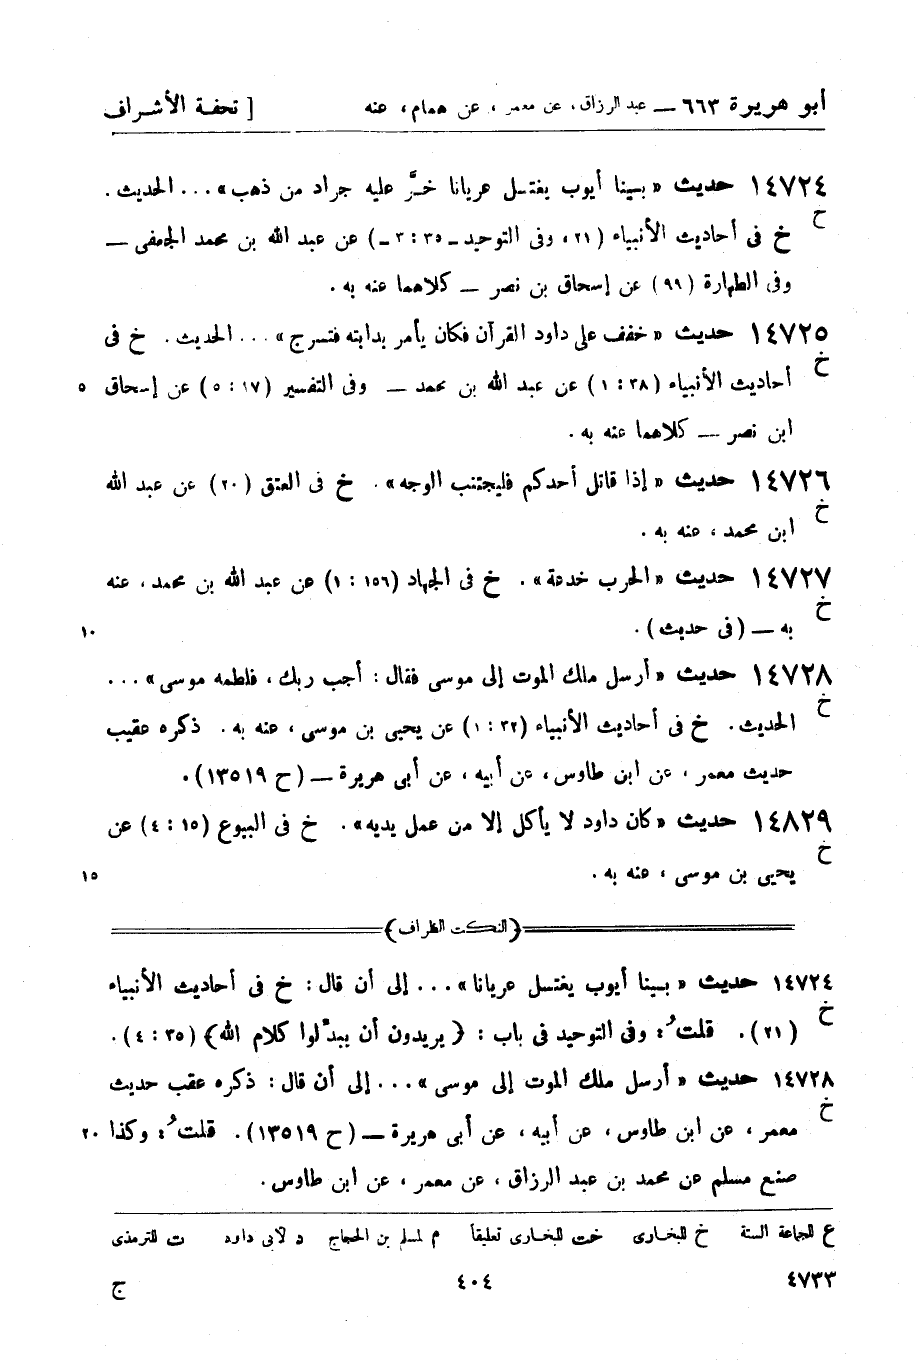 أبو هريرة ٦٦٣ — عبد الرزاق، عن معمر، عن همام، عنه [ تحفة الأشراف
١٤٧٢٤ حديث «بينا أيوب يغتسل عريانا خرَّ عليه جراد من ذهب» ... الحديث .
خ
خ فى أحاديث الأنبياء (٢١، وفى التوحيد ـ ٣٥ : ٣ ـ) عن عبد الله بن محمد الجعفى —
وفى الطهارة (٩٩) عن إسحاق بن نصر — كلاهما عنه به .
١٤٧٢٥ حديث «خفف على داود القرآن فكان يأمر بدابته فتسرج» ... الحديث . خ فى
خ
أحاديث الأنبياء (٣٨ : ١) عن عبد الله بن محمد — وفى التفسير (١٧ : ٥) عن إسحاق ٥
ابن نصر — كلاهما عنه به .
١٤٧٢٦ حديث «إذا قاتل أحدكم فليجتنب الوجه» . خ فى العتق (٢٠) عن عبد الله
خ
ابن محمد، عنه به .
١٤٧٢٧ حديث «الحرب خدعة» . خ فى الجهاد (١٥٦ : ١) عن عبد الله بن محمد، عنه
خ
به — (فى حديث) . ١٠
١٤٧٢٨ حديث «أرسل ملك الموت إلى موسى فقال : أجب ربك، فلطمه موسى» ...
خ
الحديث . خ فى أحاديث الأنبياء (٣٢ : ١) عن يحيى بن موسى، عنه به . ذكره عقيب
حديث معمر، عن ابن طاوس، عن أبيه، عن أبى هريرة — (ح ١٣٥١٩) .
١٤٨٢٩ حديث «كان داود لا يأكل إلا من عمل يديه» . خ فى البيوع (١٥ : ٤) عن
خ
يحيى بن موسى، عنه به . ١٥
(النكت الظراف)
١٤٧٢٤ حديث «بينا أيوب يغتسل عريانا» ... إلى أن قال : خ فى أحاديث الأنبياء
خ
(٢١) . قلتُ : وفى التوحيد فى باب : ﴿يريدون أن يبدِّلوا كلام الله﴾ (٣٥ : ٤) .
١٤٧٢٨ حديث «أرسل ملك الموت إلى موسى» ... إلى أن قال : ذكره عقب حديث
خ
معمر، عن ابن طاوس، عن أبيه، عن أبى هريرة — (ح ١٣٥١٩) . قلتُ : وكذا ٢٠
صنع مسلم عن محمد بن عبد الرزاق، عن معمر، عن ابن طاوس .
ع للجماعة الستة خ للبخارى خت للبخارى تعليقاً م لمسلم بن الحجاج د لأبى داود ت للترمذى
٤٧٣٣ ٤٠٤ ج